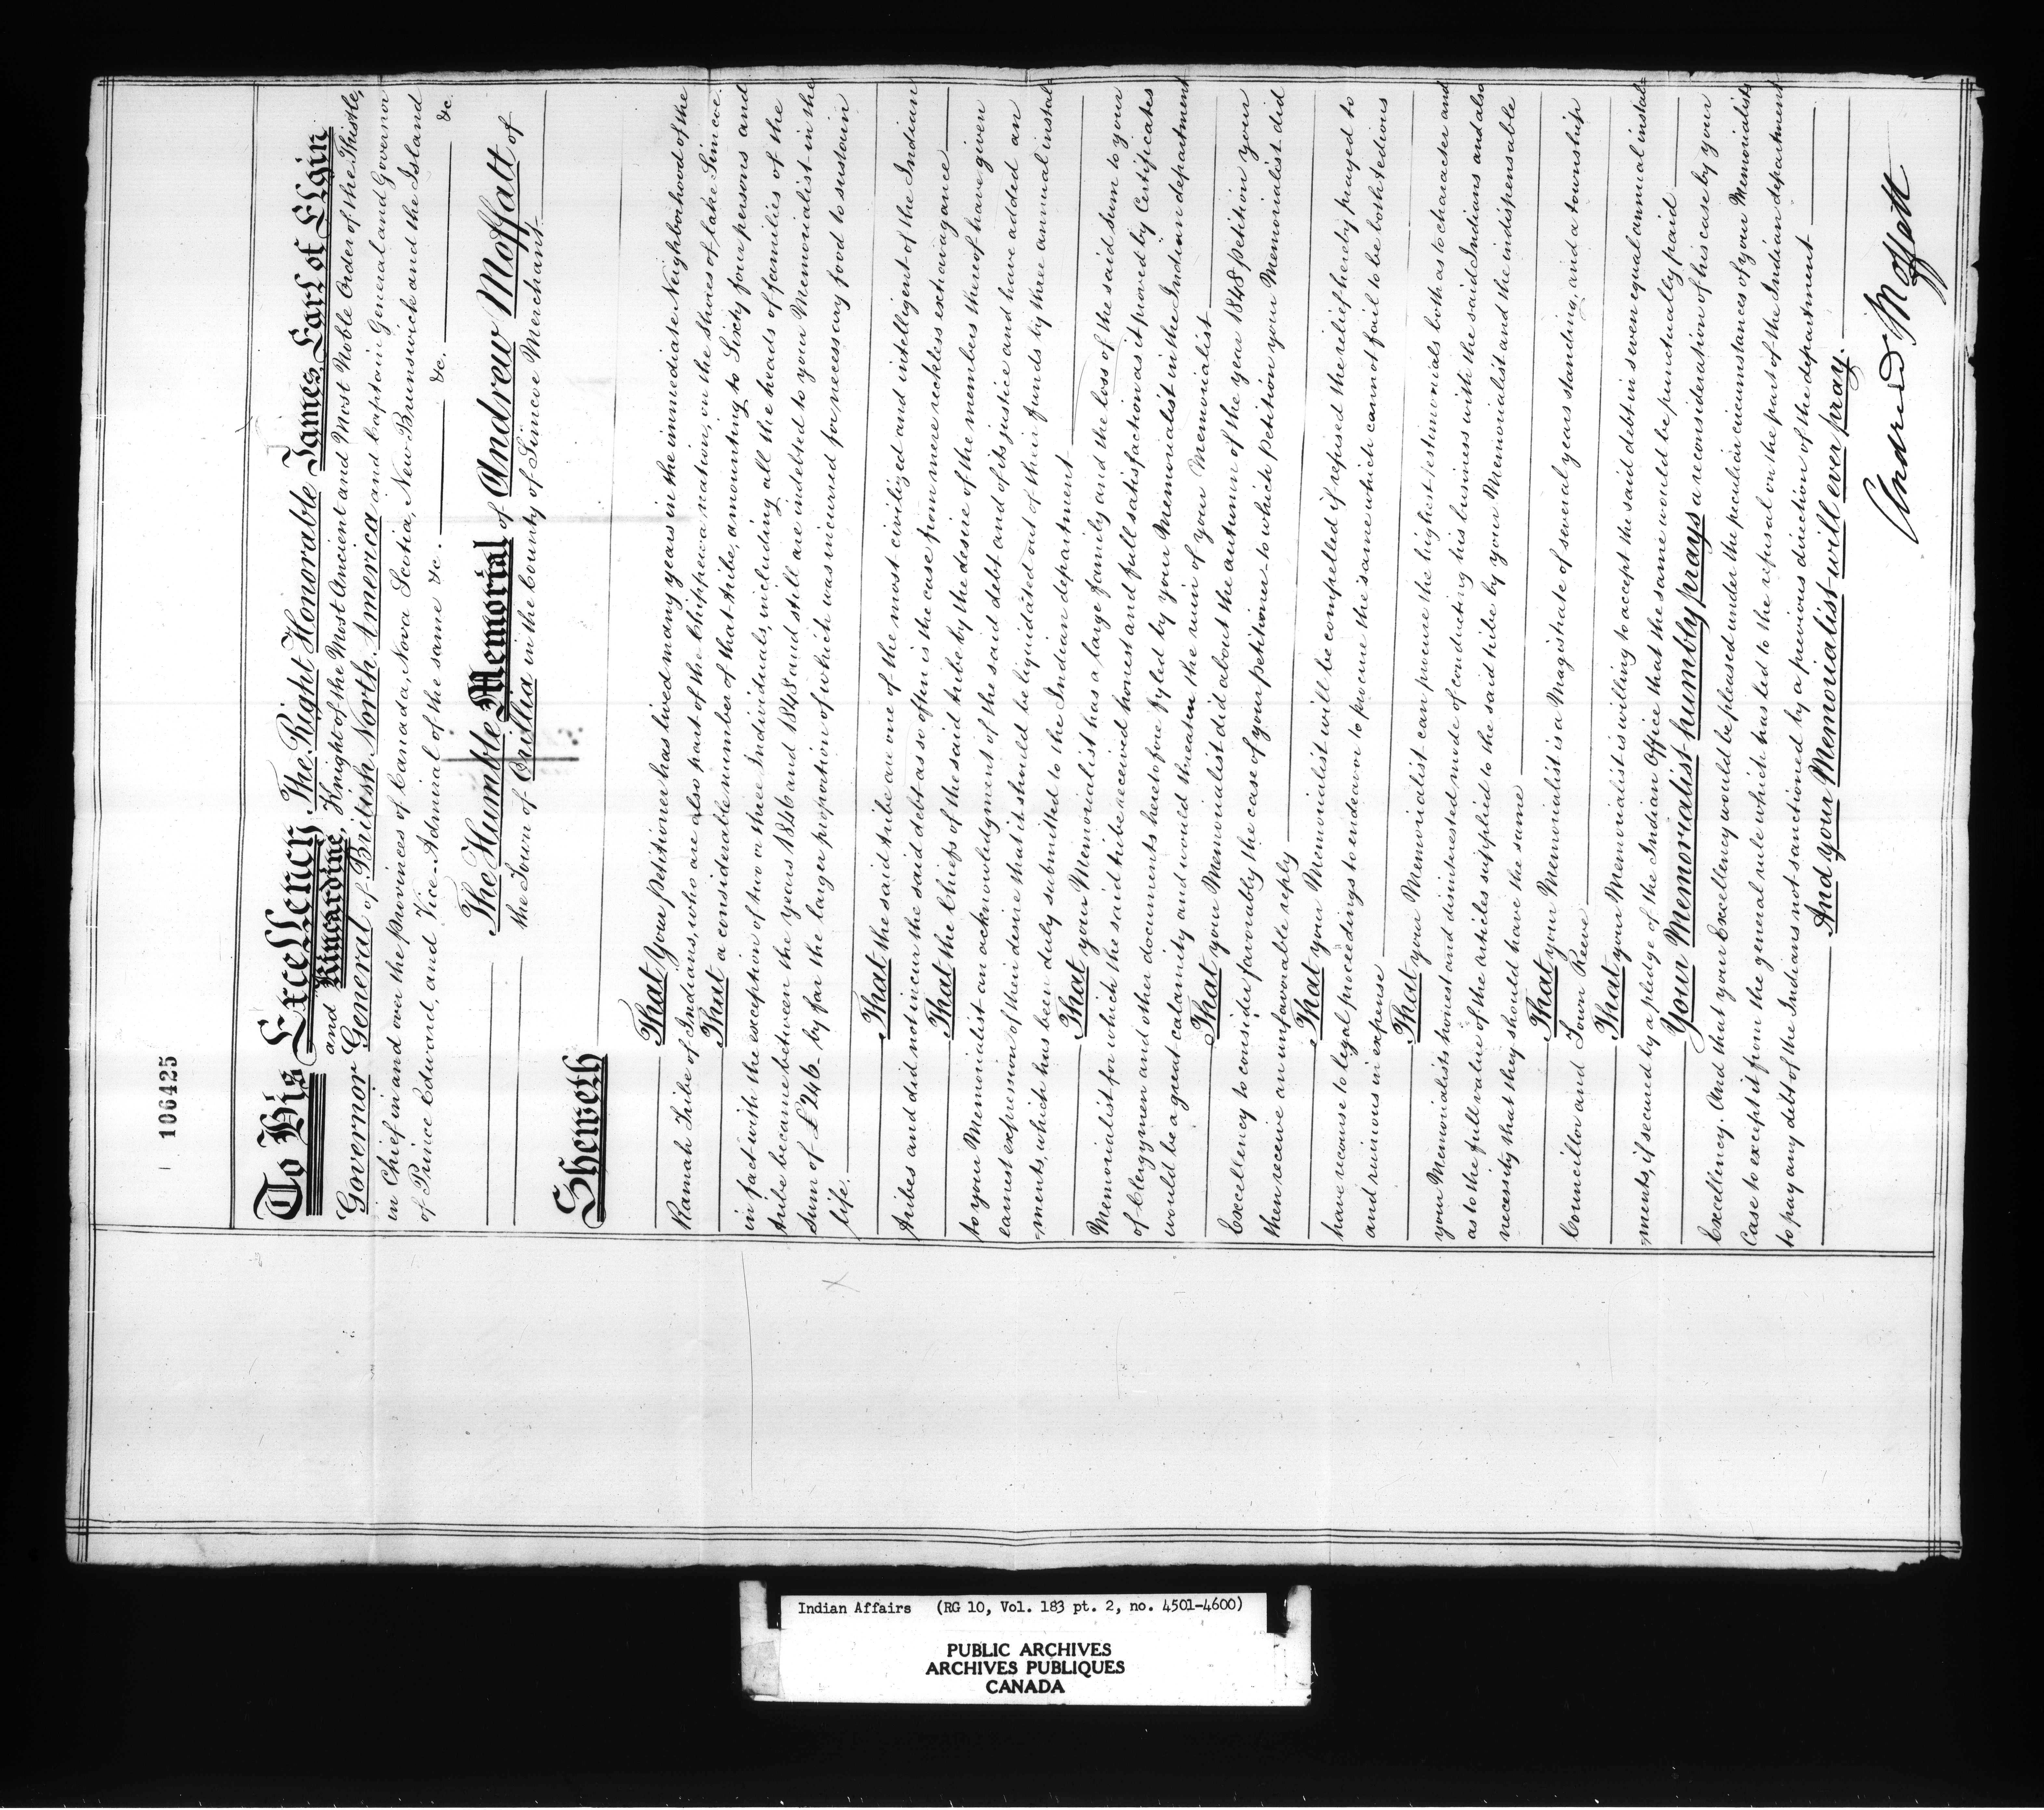 106425
To His Excellency The Right Honorable James, Earl of Elgin
and Kincardine, Knight of the Most Ancient and Most Noble Order of the Thistle,
Governor General of British North America and Captain General and Governor
in Chief in and over the Provinces of Canada, Nova Scotia, New Brunswick and the Island
of Prince Edward, and Vice-Admiral of the same &c. &c. &c.
The Humble Memorial of Andrew Moffatt of
the Town of Orillia in the County of Simcoe Merchant
Sheweth
That Your Petitioner has lived many years in the immediate Neighborhood of the
Ramah Tribe of Indians, who are also part of the Chippewa nation, on the Shores of Lake Simcoe.
That a considerable number of that tribe, amounting to Sixty four persons and
in fact with the exception of two or three Individuals, including all the heads of families of the
tribe became between the Years 1846 and 1848 and still are indebted to your Memorialist in the
Sum of £246- by far the larger proportion of which was incurred for necessary food to sustain
life.
That the said tribe are one of the most civilized and intelligent of the Indian
tribes and did not incur the said debt as so often is the case from mere reckless extravagance
That the Chiefs of the said tribe by the desire of the members thereof have given
to your Memorialist an acknowledgment of the said debt and of its justice and have added an
earnest expression of their desire that it should be liquidated out of their funds by three annual instal
=ments, which has been duly submitted to the Indian department
That your Memorialist has a large family and the loss of the said sum to your
Memorialist for which the said tribe received honest and full satisfaction as it proved by Certificates
of Clergymen and other documents heretofore fyled by your Memorialist in the Indian department
would be a great calamity and would threaten the ruin of your Memorialist
That your Memorialist did about the autumn of the year 1848 petition your
Excellency to consider favorably the case of your petitioner to which petition your Memorialist did
then receive an unfavorable reply
That your Memorialist will be compelled if refused the relief hereby prayed to
have recourse to legal proceedings to endeavor to procure the same which cannot fail to be both tedious
and ruinous in expense
That your Memorialist can procure the highest testimonials both as to character and
your Memorialists honest and disinterested mode of conducting his business with the said Indians and also
as to the full value of the articles supplied to the said tribe by your Memorialist and the indispensable
necessity that they should have the same
That your Memorialist is a Magistrate of several years standing, and a township
Councillor and Town Reeve
That your Memorialist is willing to accept the said debt in seven equal annual instal
=ments, if secured by a pledge of the Indian Office that the same would be punctually paid
Your Memorialist humbly prays a reconsideration of his case by your
Excellency. And that your Excellency would be pleased under the peculiar circumstances of your Memorialists
Case to except it from the general rule which has led to the refusal on the part of the Indian department
to pay any debt of the Indians not sanctioned by a previous direction of the department
And your Memorialist will ever pray.
Andrew Moffatt
Indian Affairs (RG 10, Vol. 183 pt. 2, no. 4501-4600)
PUBLIC ARCHIVES
ARCHIVES PUBLIQUES
CANADA